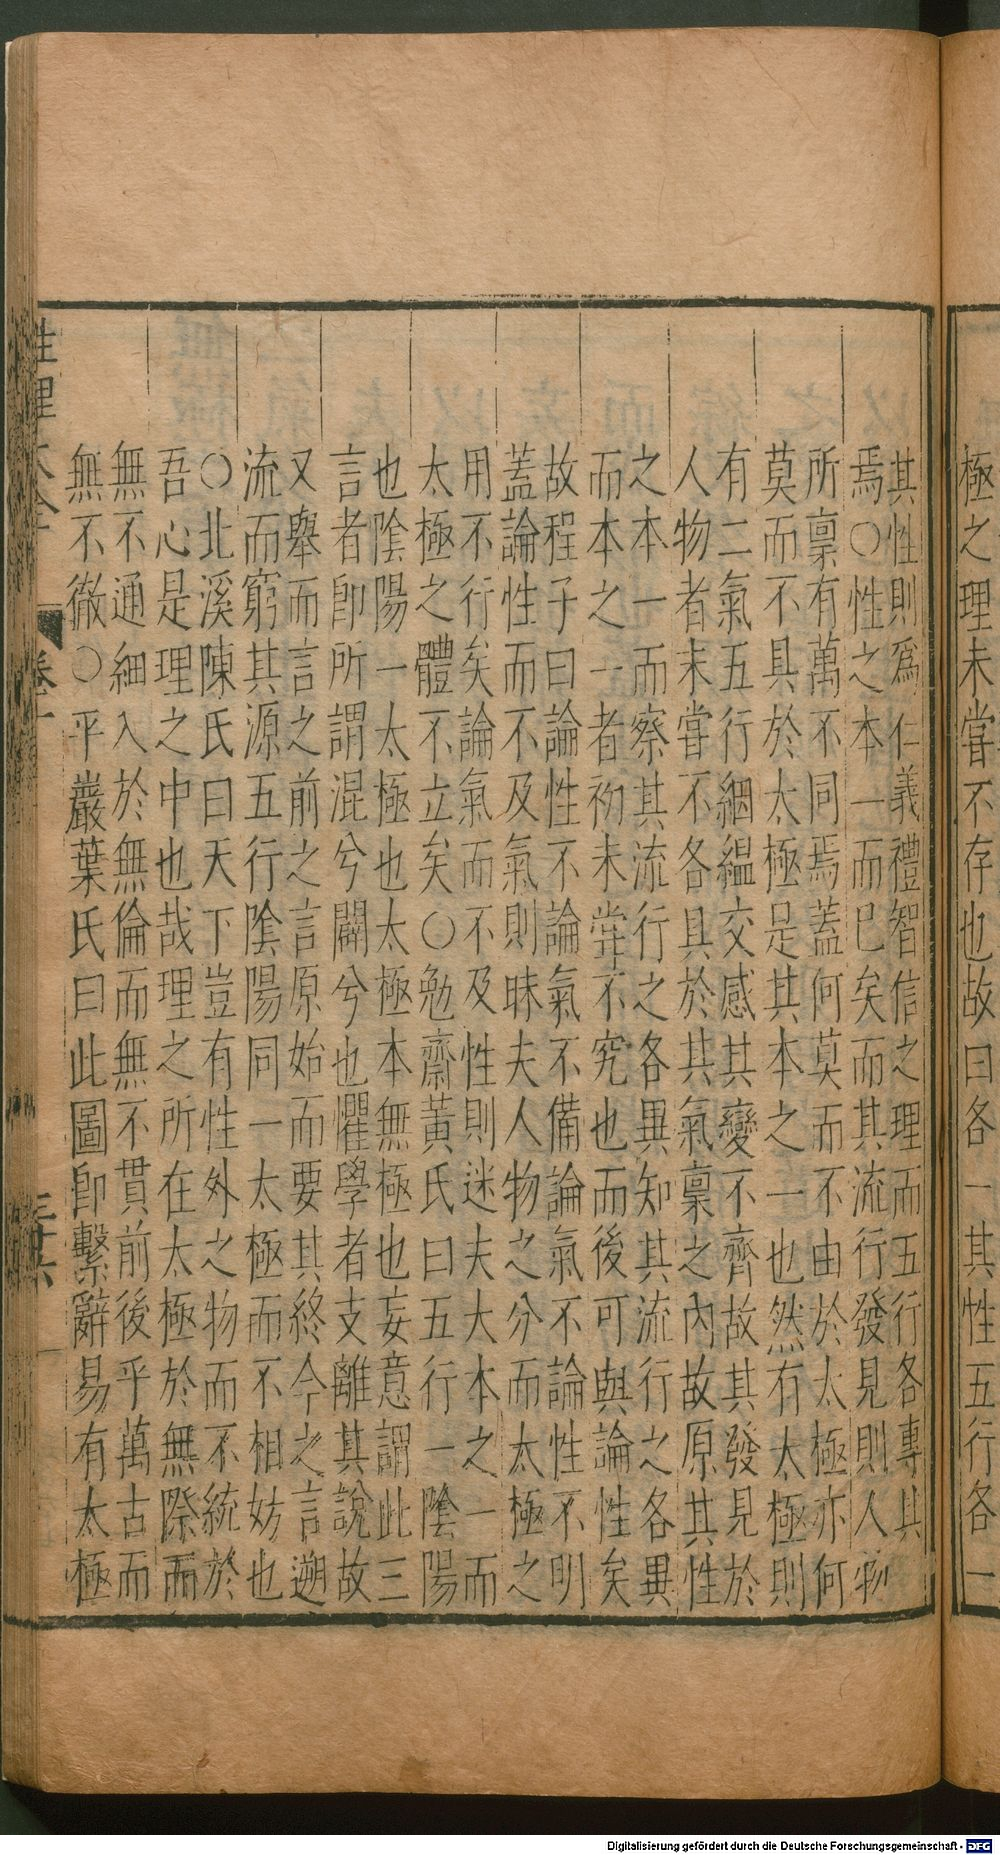 極之理未嘗不存也故曰各一其性五行各一
其性則爲仁義禮智信之理而五行各專其
焉○性之本一而已矣而其流行發見則人物
所稟有萬不同焉蓋何莫而不由於太極亦何
莫而不具於太極是其本之一也然有太極則
有二氣五行絪緼交感其變不齊故其發見於
人物者未嘗不各具於其氣稟之內故原其性
之本一而察其流行之各異知其流行之各異
而本之一者初未嘗不究也而後可與論性矣
故程子曰論性不論氣不備論氣不論性不明
蓋論性而不及氣則昧夫人物之分而太極之
用不行矣論氣而不及性則迷夫大本之一而
太極之體不立矣○勉齋黃氏曰五行一陰陽
也陰陽一太極也太極本無極也妄意謂此三
言者卽所謂混兮闢兮也懼學者支離其說故
又舉而言之前之言原始而要其終今之言遡
流而窮其源五行陰陽同一太極而不相妨也
○北溪陳氏曰天下豈有性外之物而不統於
吾心是理之中也哉理之所在太極於無際而
無不通細入於無倫而無不貫前後乎萬古而
無不徹○平巖葉氏曰此圖卽繫辭易有太極
性理大全 卷一
Digitalisierung gefördert durch die Deutsche Forschungsgemeinschaft - DFG